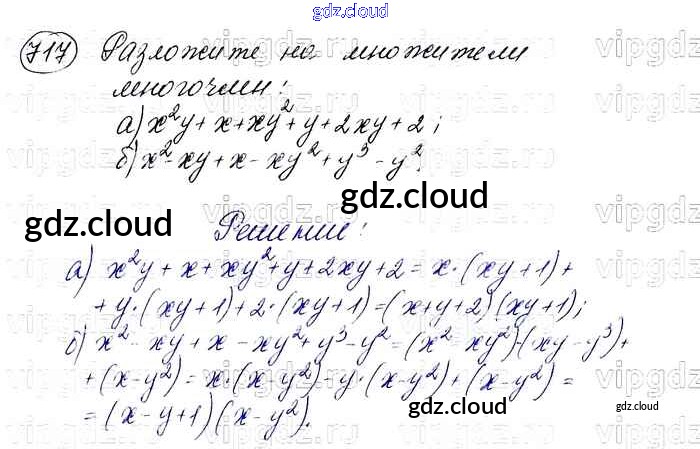 gdz.cloud
717 Разложите на множители
многочлен:
а) x²y + x + xy² + y + 2xy + 2;
б) x² - xy + x - xy² + y³ - y².
gdz.cloud
gdz.cloud Решение:
а) x²y + x + xy² + y + 2xy + 2 = x·(xy+1) +
+ y·(xy+1) + 2·(xy+1) = (x+y+2)(xy+1);
б) x² - xy + x - xy² + y³ - y² = (x² - xy²)-(xy - y³) +
+ (x - y²) = x·(x - y²) - y·(x - y²) + (x - y²) =
= (x - y + 1)(x - y²).
gdz.cloud gdz.cloud